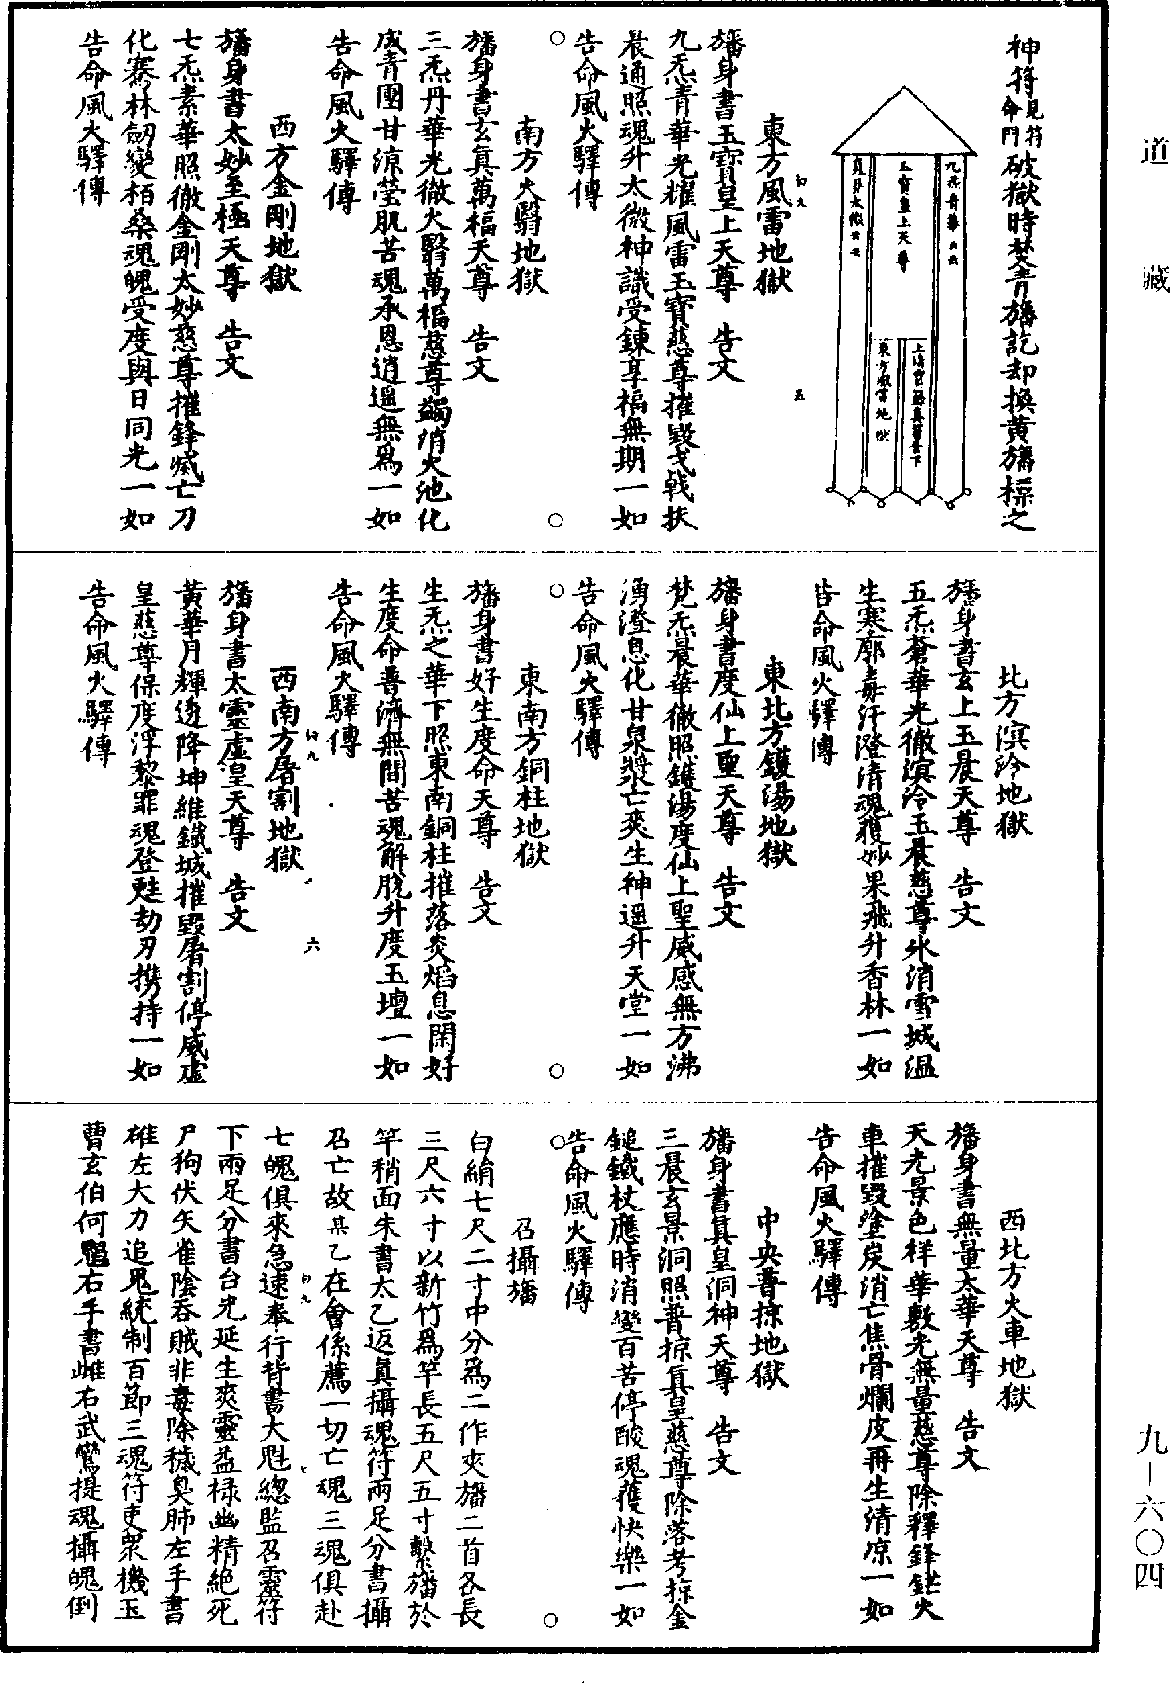 道藏
神符見符命門破獄時焚青旛訖却換黃旛標之
九炁青華
玉寶皇上天尊
東方風雷地獄
東方風雷地獄
旛身書玉寶皇上天尊　告文
九炁青華光耀風雷玉寶慈尊摧毀戈戟扶
晨通照魂升太微神識受鍊享福無期一如
告命風火驛傳
南方火翳地獄
旛身書玄真萬福天尊　告文
三炁丹華光徹火翳萬福慈尊蠲消火池化
成青團甘凉瑩肌苦魂承恩逍遥無爲一如
告命風火驛傳
西方金剛地獄
旛身書太妙至極天尊　告文
七炁素華照徹金剛太妙慈尊摧鋒滅亡刀
化騫林劒變栢桑魂魄受度與日同光一如
告命風火驛傳
北方溟泠地獄
旛身書玄上玉晨天尊　告文
五炁蒼華光徹溟泠玉晨慈尊氷消雪城温
生寒廓毒汗澄清魂獲妙果飛升香林一如
告命風火驛傳
東北方鑊湯地獄
旛身書度仙上聖天尊　告文
梵炁晨華徹照鑊湯度仙上聖威感無方沸
湧澄息化甘泉漿亡爽生神遥升天堂一如
告命風火驛傳
東南方銅柱地獄
旛身書好生度命天尊　告文
生炁之華下照東南銅柱摧落炎焰息閑好
生度命普濟無間苦魂解脫升度玉壇一如
告命風火驛傳
西南方屠割地獄
旛身書太靈虛皇天尊　告文
黃華月輝透降坤維鐵城摧毀屠割停威虛
皇慈尊保度浮黎罪魂登甦劫刃携持一如
告命風火驛傳
西北方火車地獄
旛身書無量太華天尊　告文
天光景色祥華敷光無量慈尊除釋鋒鋩火
車摧毀塗炭消亡焦骨爛皮再生清凉一如
告命風火驛傳
中央普掠地獄
旛身書真皇洞神天尊　告文
三晨玄景洞照普掠真皇慈尊除落考掠金
鎚鐵杖應時消變百苦停酸魂獲快樂一如
告命風火驛傳
召攝旛
白絹七尺二寸中分爲二作夾旛二首各長
三尺六寸以新竹爲竿長五尺五寸繫旛於
竿稍面朱書太乙返真攝魂符兩足分書攝
召亡故某乙在會係薦一切亡魂三魂俱赴
七魄俱來急速奉行背書大魁總監召靈符
下兩足分書台光延生爽靈益祿幽精絕死
尸狗伏矢雀陰吞賊非毒除穢臭肺左手書
碓左大力追鬼統制百節三魂符吏衆機玉
曹玄伯何鬾右手書雌右武鸞提魂攝魄倒
九－六〇四